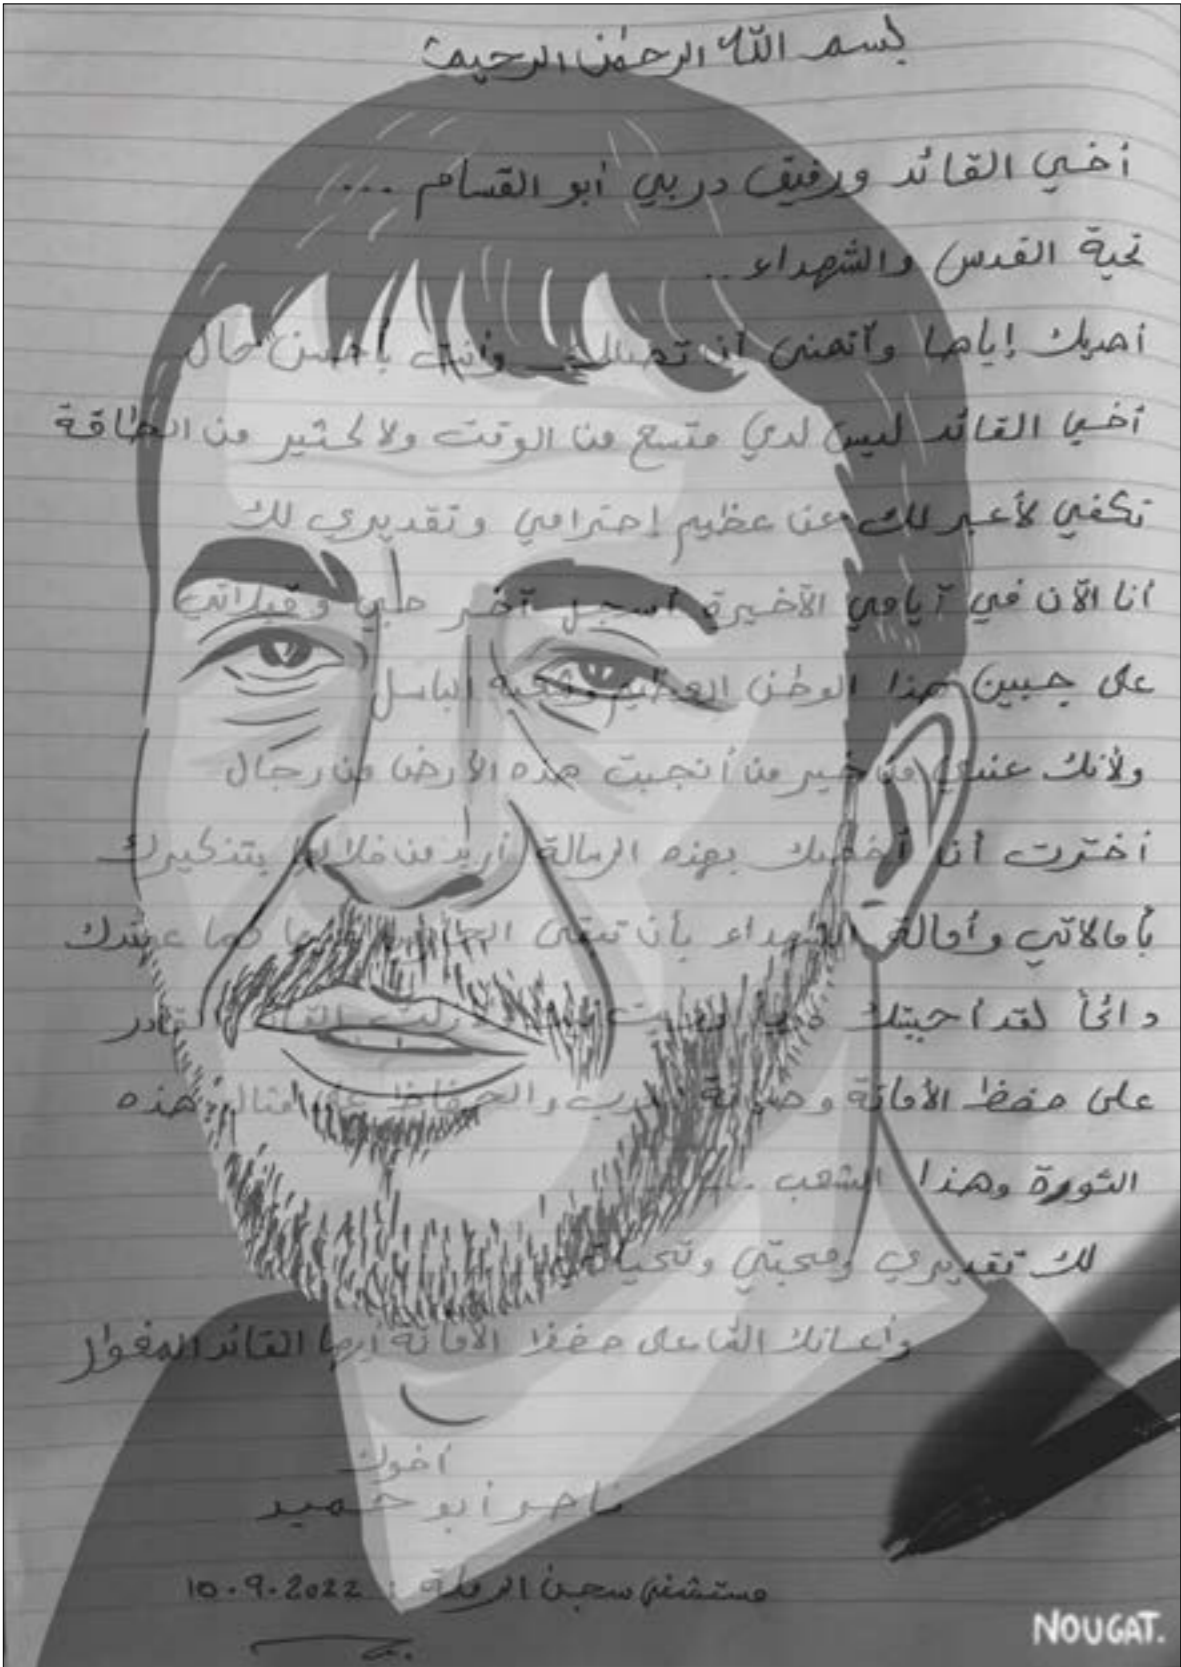 بسم الله الرحمن الرحيم
أخي القائد ورفيق دربي أبو القسام ...
تحية القدس والشهداء ..
أهديك إياها وأتمنى أن تصلك وأنت بأحسن حال
أخي القائد ليس لدي متسع من الوقت ولا كثير من الطاقة
تكفي لأعبر لك عن عظيم إحترامي وتقديري لك
أنا الآن في آيامي الآخيرة أسجل آخر حبي وقبلاتي
على جبين هذا الوطن العظيم وشعبه الباسل
ولأنك عندي من خير من أنجبت هذه الأرض من رجال
أخترت أن أخصك بهذه الرسالة أريد من خلالها بتذكيرك
بأمالاتي وأمالة الشهداء بأن تبقى كما عهدتك
دائماً لقد أحببتك
على حفظ الأمانة الدرب والحفاظ على هذه
الثورة وهذا الشعب ..
لك تقديري ومحبتي وتحياتي
وأعانك الله على حفظ الأمانة أيها القائد المغوار
أخوك
ناصر أبو حميد
مستشفى سجن الرملة : 10.9.2022
NOUGAT.